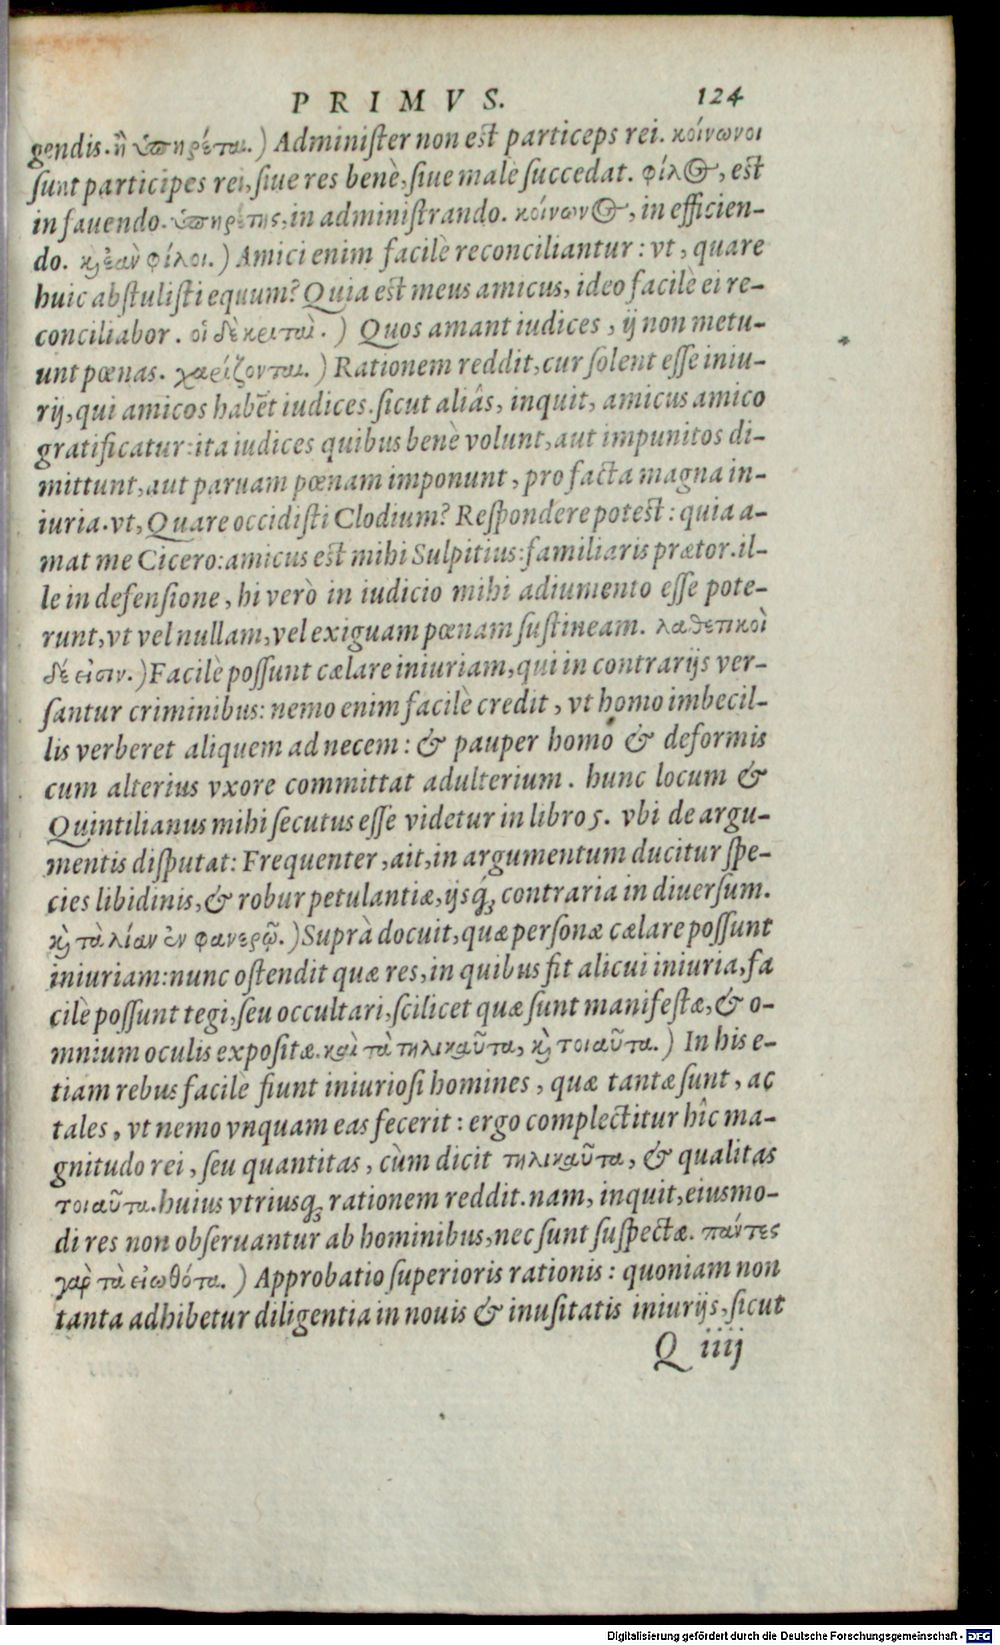 PRIMVS. 124
gendis. ἢ ὑπηρέται.) Administer non est particeps rei. κοίνωνοι
sunt participes rei, siue res benè, siue malè succedat. φίλος, est
in fauendo. ὑπηρέτης, in administrando. κοίνωνος, in efficien-
do. καὶ ἐὰν φίλοι.) Amici enim facilè reconciliantur: vt, quare
huic abstulisti equum? Quia est meus amicus, ideo facilè ei re-
conciliabor. οἱ δὲ κριταὶ.) Quos amant iudices, ij non metu-
unt pœnas. χαρίζονται.) Rationem reddit, cur solent esse iniu-
rij, qui amicos habẽt iudices. sicut aliâs, inquit, amicus amico
gratificatur: ita iudices quibus benè volunt, aut impunitos di-
mittunt, aut paruam pœnam imponunt, pro facta magna in-
iuria. vt, Quare occidisti Clodium? Respondere potest: quia a-
mat me Cicero: amicus est mihi Sulpitius: familiaris prætor. il-
le in defensione, hi verò in iudicio mihi adiumento esse pote-
runt, vt vel nullam, vel exiguam pœnam sustineam. λαθετικοὶ
δέ εἰσιν.) Facilè possunt cælare iniuriam, qui in contrarijs ver-
santur criminibus: nemo enim facilè credit, vt homo imbecil-
lis verberet aliquem ad necem: & pauper homo & deformis
cum alterius vxore committat adulterium. hunc locum &
Quintilianus mihi secutus esse videtur in libro 5. vbi de argu-
mentis disputat: Frequenter, ait, in argumentum ducitur spe-
cies libidinis, & robur petulantiæ, ijsq́; contraria in diuersum.
καὶ τὰ λίαν ἐν φανερῷ.) Suprà docuit, quæ personæ cælare possunt
iniuriam: nunc ostendit quæ res, in quibus fit alicui iniuria, fa
cilè possunt tegi, seu occultari, scilicet quæ sunt manifestæ, & o-
mnium oculis expositæ. καὶ τὰ τηλικαῦτα, καὶ τοιαῦτα.) In his e-
tiam rebus facilè fiunt iniuriosi homines, quæ tantæ sunt, ac
tales, vt nemo vnquam eas fecerit: ergo complectitur hîc ma-
gnitudo rei, seu quantitas, cùm dicit τηλικαῦτα, & qualitas
τοιαῦτα. huius vtriusq; rationem reddit. nam, inquit, eiusmo-
di res non obseruantur ab hominibus, nec sunt suspectæ. πάντες
γὰρ τὰ εἰωθότα.) Approbatio superioris rationis: quoniam non
tanta adhibetur diligentia in nouis & inusitatis iniurijs, sicut
Q iiij
Digitalisierung gefördert durch die Deutsche Forschungsgemeinschaft - DFG